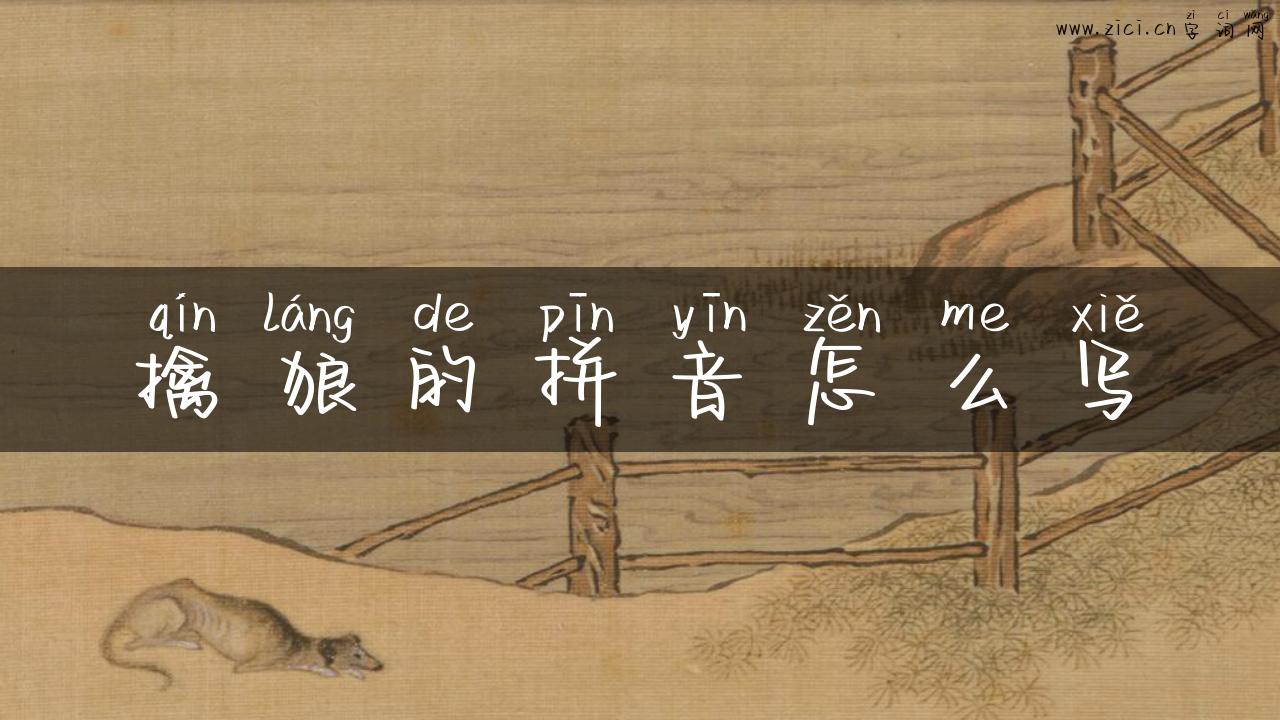 zi ci wang
www.zici.cn 字词网
qín láng de pīn yīn zěn me xiě
擒狼的拼音怎么写